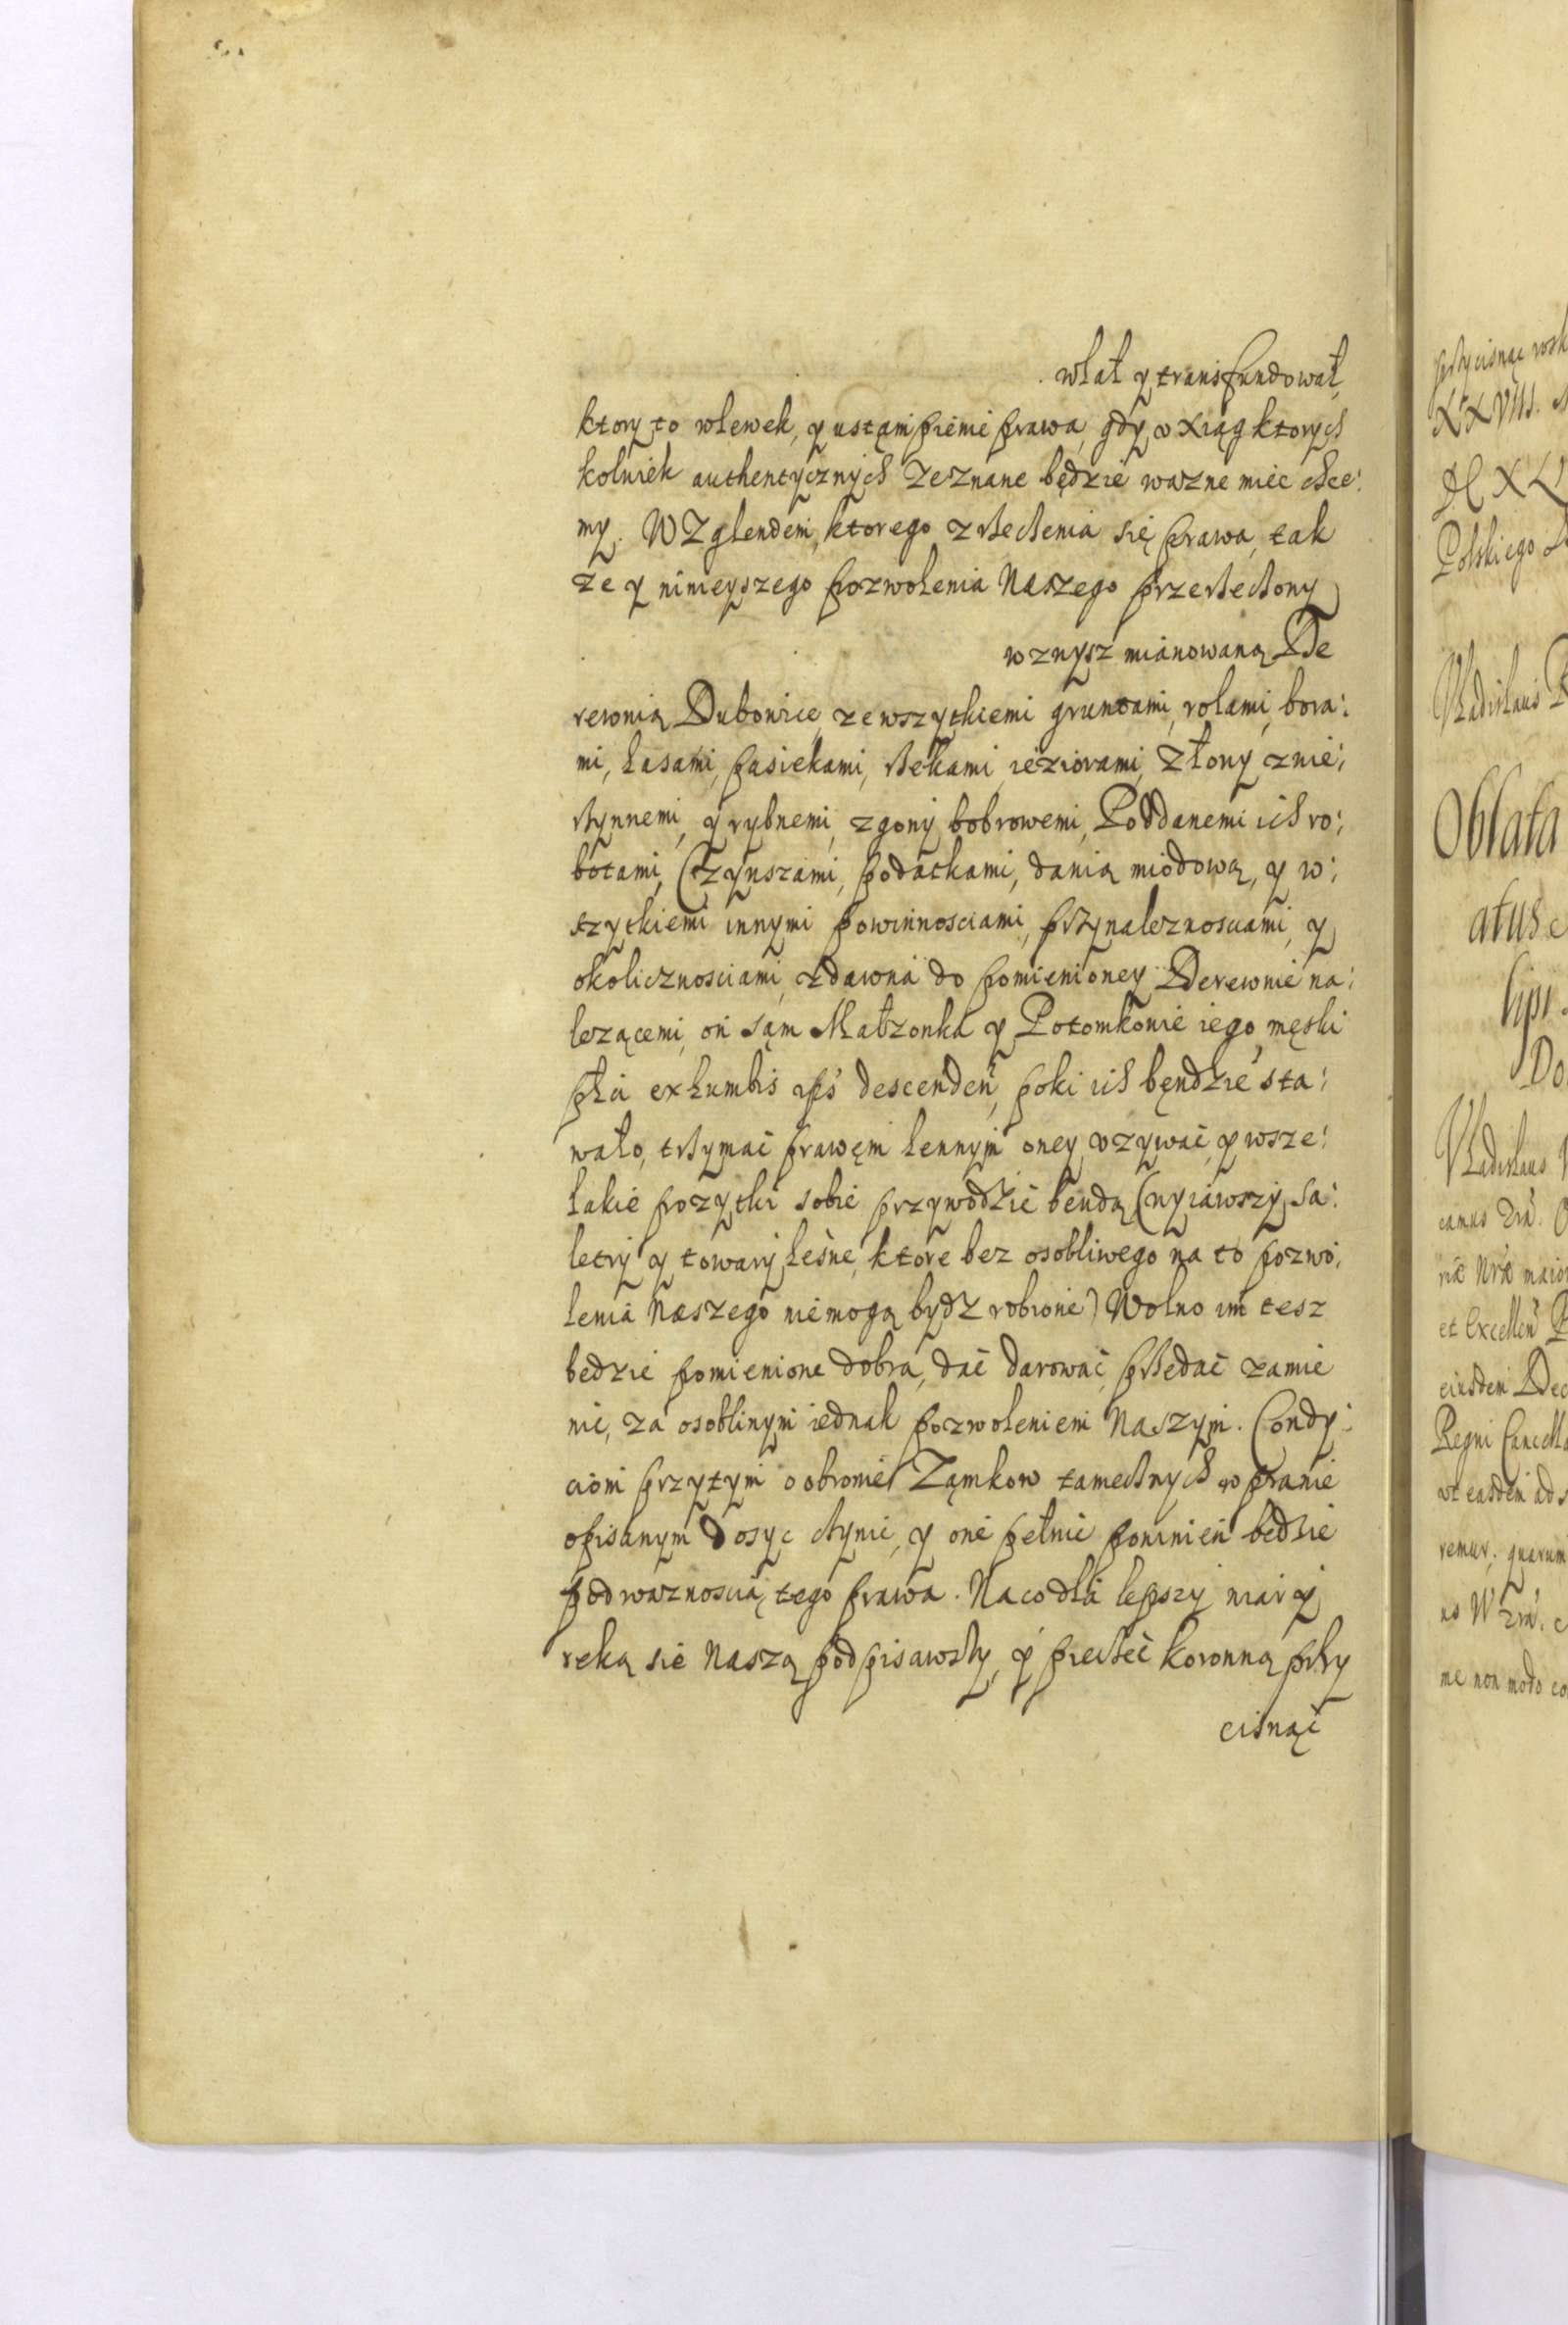 wlał y transfundował,
ktory to wlewek, y ustąmpienie prawa, gdy v Xiąg ktorych
kolwiek authentycznych zeznane będzie wazne miec chce:
my. WZglendem, ktorego zrzeczenia się prawa, tak
ze y ninieyszego pozwolenia Naszego przerzeczony
wznysz mianowaną De
rewnią Dubowice, ze wszytkiemi gruntami, rolami, bora:
mi, Lasami, pasiekami, rzekami, ieziorami, złowy zwie:
rzynnemi, y rybnemi, zgony bobrowemi, Poddanemi ich ro:
botami, Czynszami, podatkami, danią miodową, y w:
szytkiemi innymi powinnosciami, przynaleznosciami, y
okolicznosciami, zdawna do pomienioney Derewnie na:
lezącemi, on sąm Małzonka y Potomkowie iego męski
płci ex Lumbis ips descenden, poki ich bęndzie sta:
wało, trzymać prawęm Lennym oney vzywać, y wsze:
lakie pozytki sobie przywodzić bendą (wyiąwszy sa:
letry y towary Leśne, ktore bez osobliwego na to pozwo:
lenia Naszego nie mogą bydz robione) Wolno im tesz
bedzie pomienione dobra, dać darować, przedać zamie
nić, za osobliwym iednak pozwoleniem Naszym. Condy:
ciom przytym o obronie Ząmkow tamecznych w prawie
opisanym Dosyc czynic, y one pełnić powinien bedzie
pod waznoscią tego prawa. Na co dla lepszy wiary
ręką sie Naszą podpisawszy, y pieczęć koronną przy
cisnąć
przycisnąć
XXVIII.
Polskiego
Vladislaus
Oblata
atus
Do
Vladislaus
camus
næ Nræ maior
et Excellen
eiusdem Dec
Regni Cancella
vt easdem ad s
remur, quarum
me non modo co